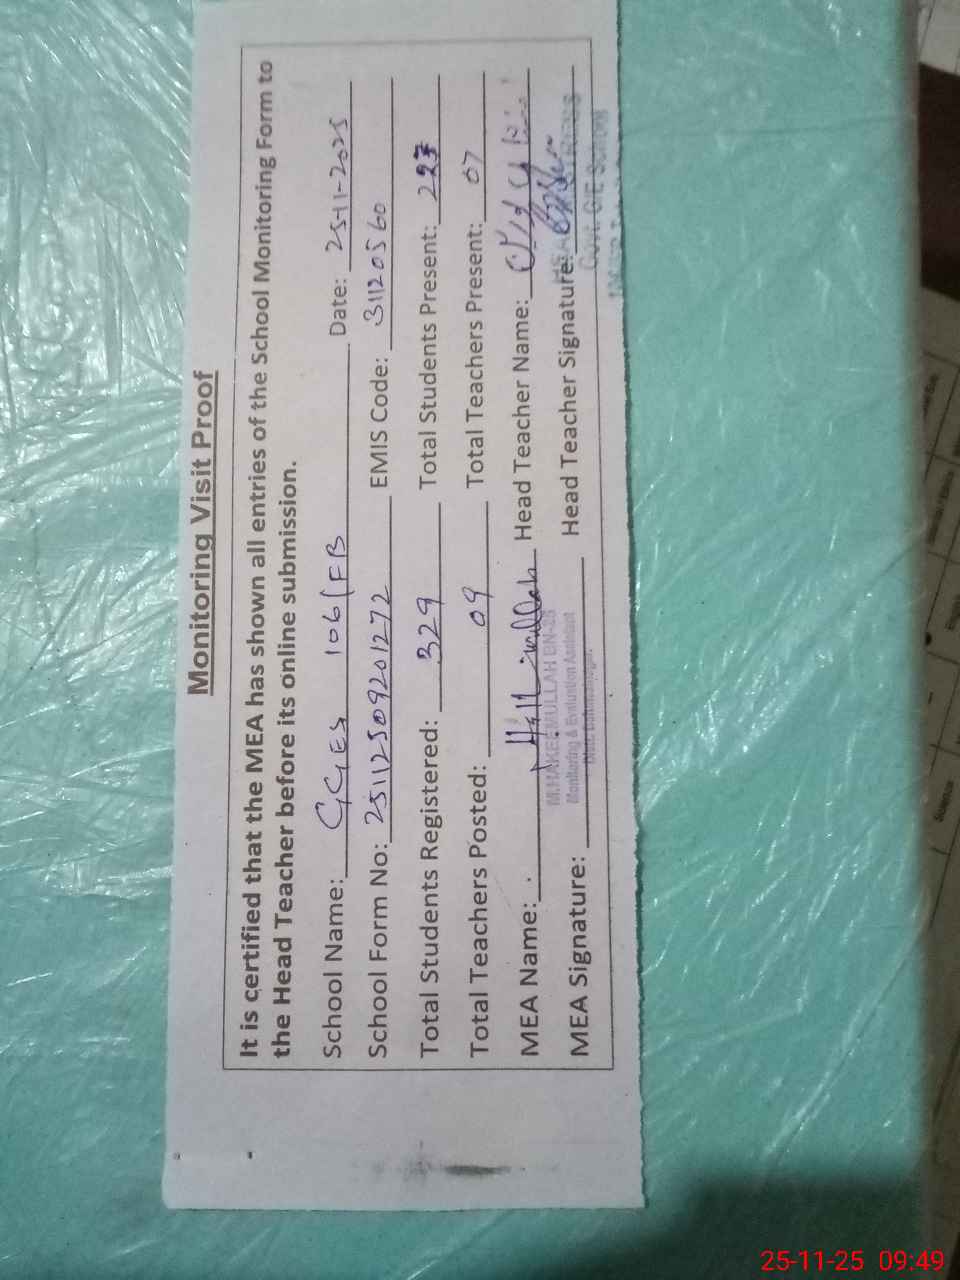 Monitoring Visit Proof
It is certified that the MEA has shown all entries of the School Monitoring Form to
the Head Teacher before its online submission.
School Name: GGES 106/FB Date: 25-11-2025
School Form No: 25112509201272 EMIS Code: 31120560
Total Students Registered: 329 Total Students Present:
Total Teachers Posted: 09 Total Teachers Present: 07
MEA Name: Head Teacher Name:
M.HAKEEMULLAH BN-25
MEA Signature: Head Teacher Signature:
Monitoring & Evaluation Assistant
Distt: Bahawalnagar.
HEADMISTRESS
Govt. G/E School
25-11-25 09:49